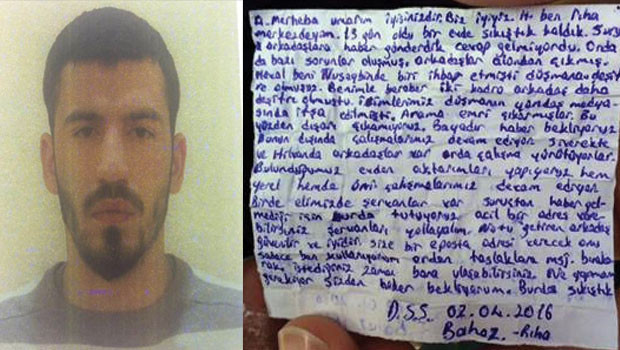 A. Merheba umarım iyisinizdir. Biz iyiyiz. H. ben Riha
merkezdeyim. 13 gün oldu bir evde sıkıştık kaldık. Suruç
a arkadaşlara haber gönderdik cevap gelmiyordu. Orda
da bazı sorunlar oluşmuş, arkadaşlar alandan çıkmış.
Heval beni Nusaybinde biri ihbap etmişti düşmana deşif
re olmuşuz. Benimle beraber iki kadro arkadaş daha
deşifre olmuştu. İsimlerimiz düşmanın yandaş medya
sında ifşa edilmişti. Arama emri çıkarmışlar. Bu
yüzden dışarı çıkamıyoruz. Bayadır haber bekliyoruz
Bunun dışında çalışmalarımız devam ediyor. Siverekte
ve Hilvanda arkadaşlar var orda çalışma yürütüyorlar.
Bulunduğumuz evden aktarımları yapıyoruz hem
yerel hemde çalışmalarımız devam ediyor
Birde elimizde şervanlar var suruçtan haber gel
mediği için burda tutuyoruz acil bir adres vere
bilirseniz şervanları yollayalım. Notu getiren arkadaş
güvenilir ve iyidir. size bir eposta adresi verecek onu
sadece ben kullanıyorum ordan taslaklara msj. bıraka
rak, istediğiniz zaman bana ulaşabilirsiniz. Ne yapmam
gerekiyor sizden haber bekliyorum. Burda sıkıştık
D.S.S. 02.04.2016
Bahoz -Riha